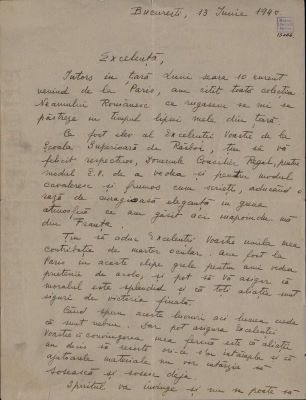 Bucuresti, 13 Iunie 1940
Excelență,
Intors în țară Luni seara 10 curent
venind de la Paris, am citit toată colecția
Neamului Românesc ce rugasem să mi se
păstreze în timpul lipsei mele din țară.
Ca fost elev al Excelenței Voastre de la
Școala Superioară de Război, țin să vă
felicit respectuos, Domnule Consilier Regal, pentru
modul E.V. de a vedea și pentru modul
cavaleresc și frumos cum scrieți, aducând o
rază de curagioasă eleganță în
atmosferă ce am găsit aci înapoindu-mă
din Franța.
Țin să aduc Excelenței Voastre umila mea
contribuție de martor ocular. Am fost la
Paris în aceste clipe grele pentru a-mi vedea
prietenii de acolo, și pot să vă asigur că
moralul este splendid și că toți aliații sunt
siguri de victoria finală.
Când spun aceste lucruri aci lumea crede
că sunt nebun. Dar pot asigura Excelența
Voastră că convingerea mea fermă este că aliații
au decis să reziste ori-ce s'ar întâmpla și că
ajutoarele materiale nu vor întârzia să
sosească și sosesc deja.
Spiritul va învinge și nu se poate să